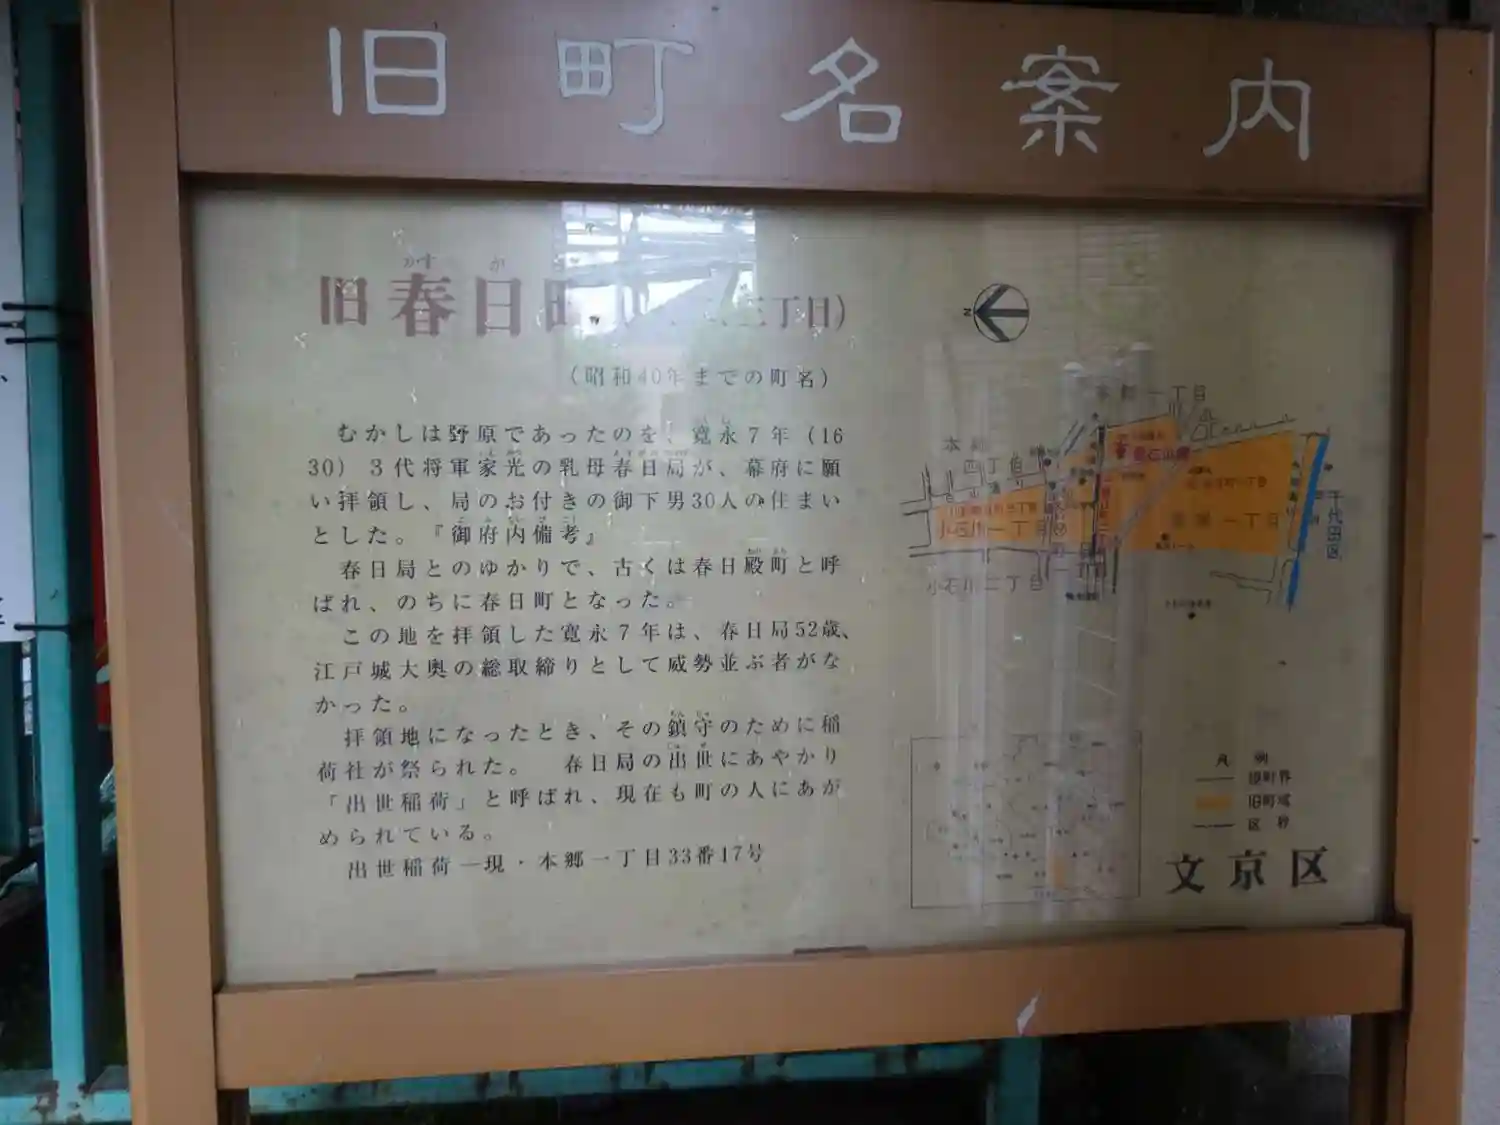 旧町名案内
かすか
旧春日町 三丁目）
（昭和40年までの町名）
むかしは野原であったのを、寛永7年（16
30）3代将軍家光の乳母春日局が、幕府に願
い拝領し、局のお付きの御下男30人の住まい
とした。『御府内備考』
春日局とのゆかりで、古くは春日殿町と呼
ばれ、のちに春日町となった。
この地を拝領した寛永7年は、春日局52歳、
江戸城大奥の総取締りとして威勢並ぶ者がな
かった。
拝領地になったとき、その鎮守のために稲
荷社が祭られた。 春日局の出世にあやかり
「出世稲荷」と呼ばれ、現在も町の人にあが
められている。
出世稲荷―現・本郷一丁目33番17号
N
本郷一丁目
四丁目
小石川一丁目
一丁目
小石川二丁目
千代田区
凡例
旧町界
旧町域
区界
文京区